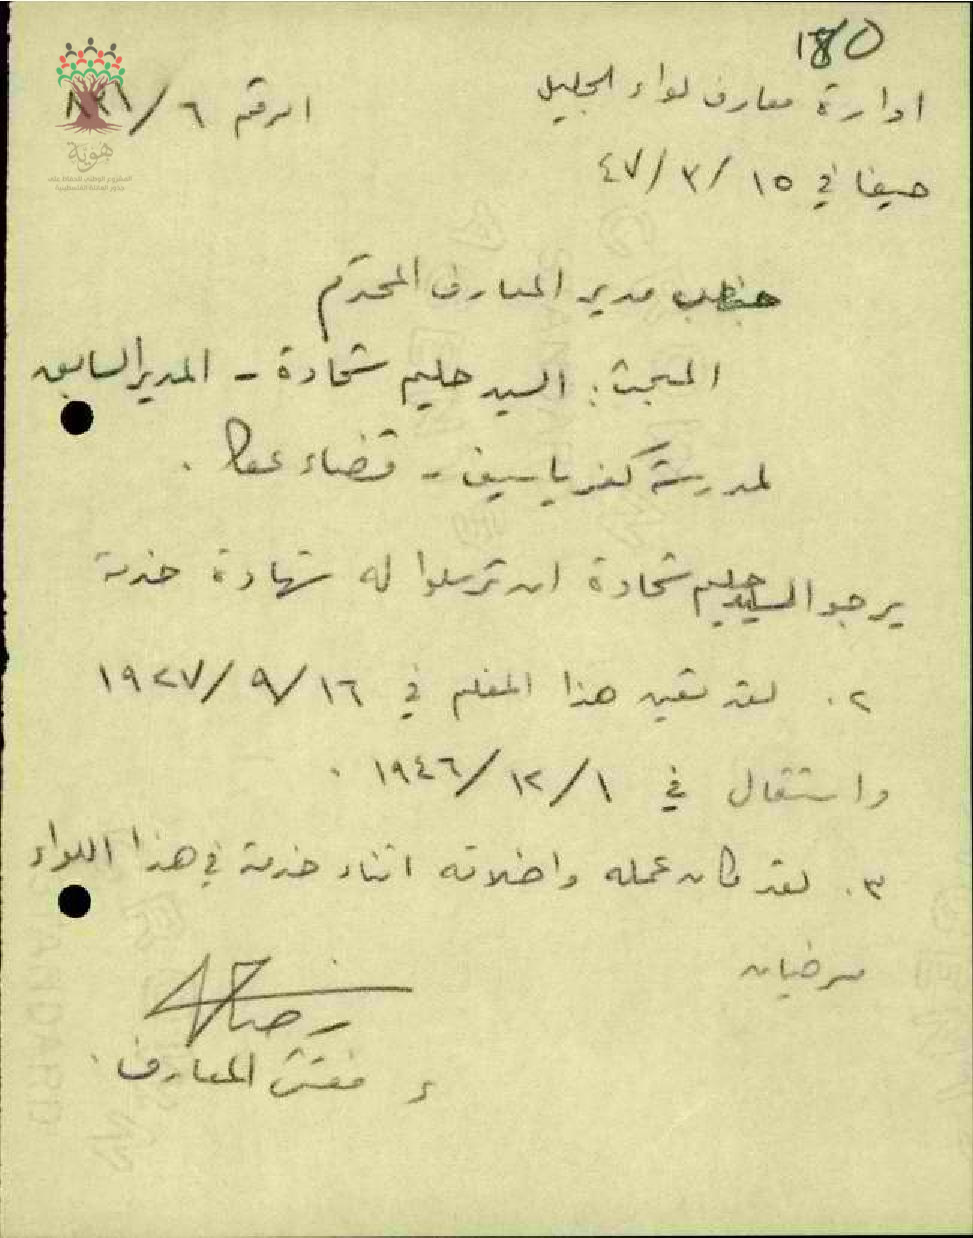 180
ادارة معارف لواء الجليل
الرقم ٦/
حيفا في ١٥/٣/٤٧
هوية
المشروع الوطني للحفاظ على
جذور العائلة الفلسطينية
جناب مدير المعارف المحترم
المبحث: السيد حليم شحادة - المدير السابق
لمدرسة كفر ياسيف - قضاء عكا.
يرجو السيد حليم شحادة ان ترسلوا له شهادة خدمة
٢. لقد تعين هذا المعلم في ١٦/٩/١٩٢٧
واستقال في ١/١٢/١٩٤٦.
٣. لقد كان عمله واخلاقه اثناء خدمة في هذا اللواء
مرضيان
ء مفتش المعارف.